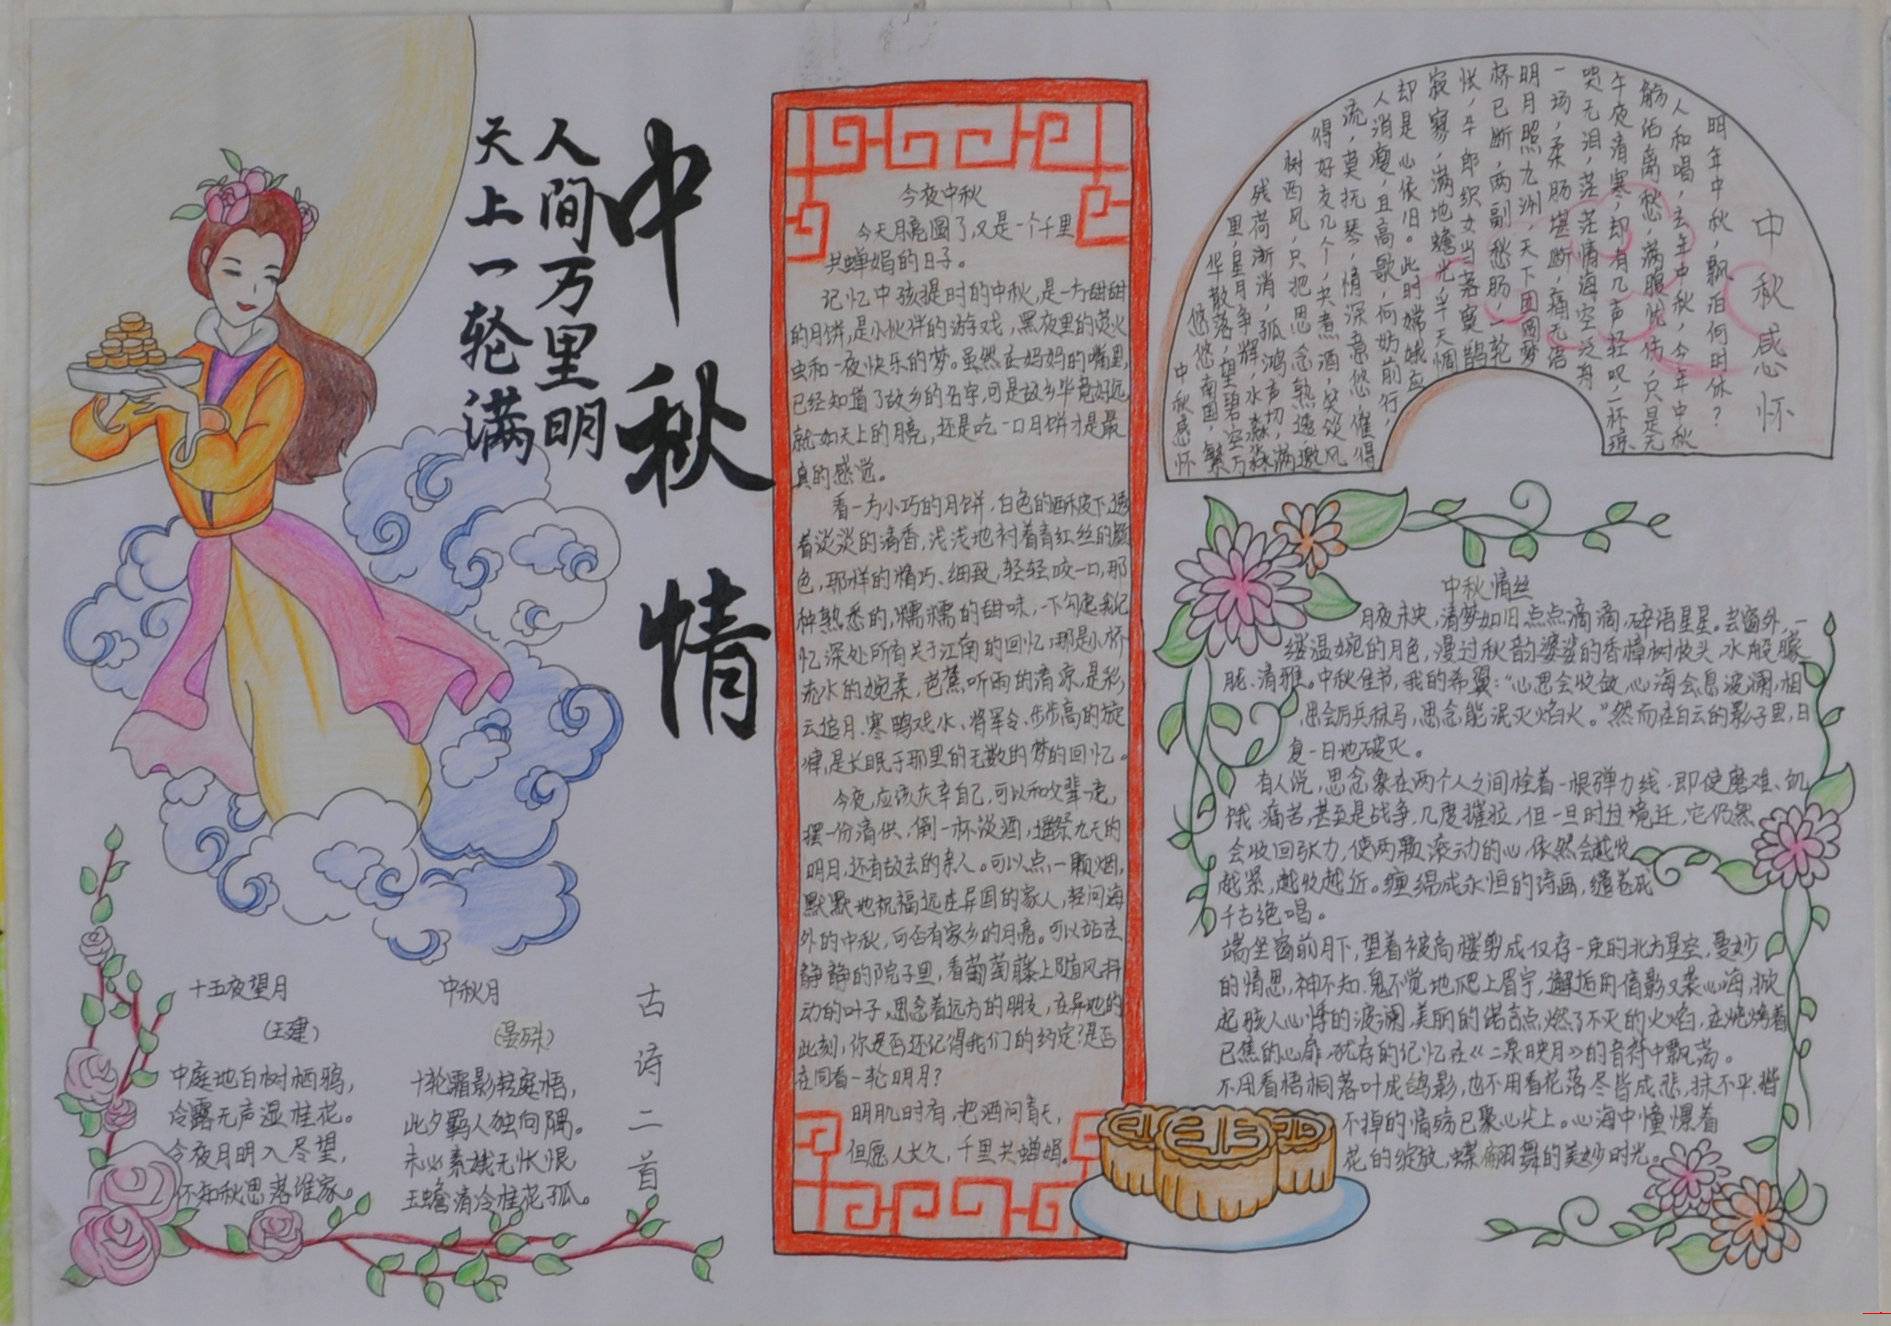 中秋情
人间万里明
天上一轮满
古诗二首
十五夜望月
(王建)
中庭地白树栖鸦,
冷露无声湿桂花。
今夜月明人尽望,
不知秋思落谁家。
中秋月
(晏殊)
十轮霜影转庭梧,
此夕羁人独向隅。
未必素娥无怅恨,
玉蟾清冷桂花孤。
今夜中秋
今天月亮圆了,又是一个千里
共蝉娟的日子。
记忆中孩提时的中秋,是一方甜甜
的月饼,是小伙伴的游戏,黑夜里的萤火
虫和一夜快乐的梦。虽然在妈妈的嘴里,
已经知道了故乡的名字,可是故乡毕竟好远
就如天上的月亮,还是吃一口月饼才是最
真的感觉。
看一方小巧的月饼,白色的酥皮下,透
着淡淡的清香,浅浅地衬着青红丝的颜
色,那样的精巧、细致,轻轻咬一口,那
种熟悉的,糯糯的甜味,一下勾起我记
忆深处所有关于江南的回忆,那是小桥
流水的婉柔,芭蕉听雨的清凉,是彩
云追月、寒鸭戏水、将军令、步步高的旋
律,是长眠于那里的无数的梦的回忆。
今夜,应该庆幸自己,可以和父辈一起,
摆一份清供,倒一杯淡酒,遥祭九天的
明月,还有故去的亲人。可以点一颗烟,
默默地祝福远在异国的家人,轻问海
外的中秋,可否有家乡的月亮。可以站在
静静的院子里,看葡萄藤上随风抖
动的叶子,思念着远方的朋友,在异地的
此刻,你是否还记得我们的约定?是否
在同看一轮明月?
明月几时有,把酒问青天,
但愿人长久,千里共蝉娟。
中秋感怀
明年中秋,飘泊何时休?
人和唱,去年中秋,今年中秋
觞佰离愁,满腹忧伤,只是无
午夜清寒,却有几声轻叹,一杯琼
哭无泪,茫茫情海空泛舟
一场,柔肠堪断,痛无语
明月照九洲,天下团圆梦
桥已断,两副愁肠,一轮
怅,牛郎织女当落寞,鹊
寂寥,满地蟾光,半天惆
却是心依旧。此时嫦娥应
人消瘦,且高歌,何妨前行,
流,莫抚琴,情深意悠,催得
得好友几个,共煮酒,笑谈风
树西风,只把思念熟透,邀
残荷渐消,孤鸿声切,满
里,星月争辉,水淼淼
华散落,望碧空万
悠悠南国,繁
中秋感怀
中秋情丝
月夜未央,清梦如旧,点点滴滴,碎语星星。芸窗外,一
缕温婉的月色,漫过秋韵婆娑的香樟树枝头,水般朦
胧、清雅。中秋佳节,我的希冀:“心思会收敛,心海会息波澜,相
思会厉兵秣马,思念能泯灭焰火。”然而在白云的影子里,日
复一日地破灭。
有人说,思念象在两个人之间栓着一根弹力线,即使磨难、饥
饿、痛苦,甚至是战争,几度摧拉,但一旦时过境迁,它仍然
会收回张力,使两颗滚动的心,依然会越收
越紧,越收越近。缠绵成永恒的诗画,缱卷成
千古绝唱。
端坐窗前月下,望着被高楼剪成仅存一束的北方星空,曼妙
的情思,神不知、鬼不觉地爬上眉宇,邂逅的倩影又袭心海,掀
起骇人心悸的波澜,美丽的诺言点燃了不灭的火焰,在烧烤着
已焦的心扉,犹存的记忆在《二泉映月》的音符中飘荡。
不用看梧桐落叶成鸽影,也不用看花落尽皆成悲,抹不平,揩
不掉的情殇已聚心尖上。心海中憧憬着
花的绽放,蝶翩舞的美妙时光。